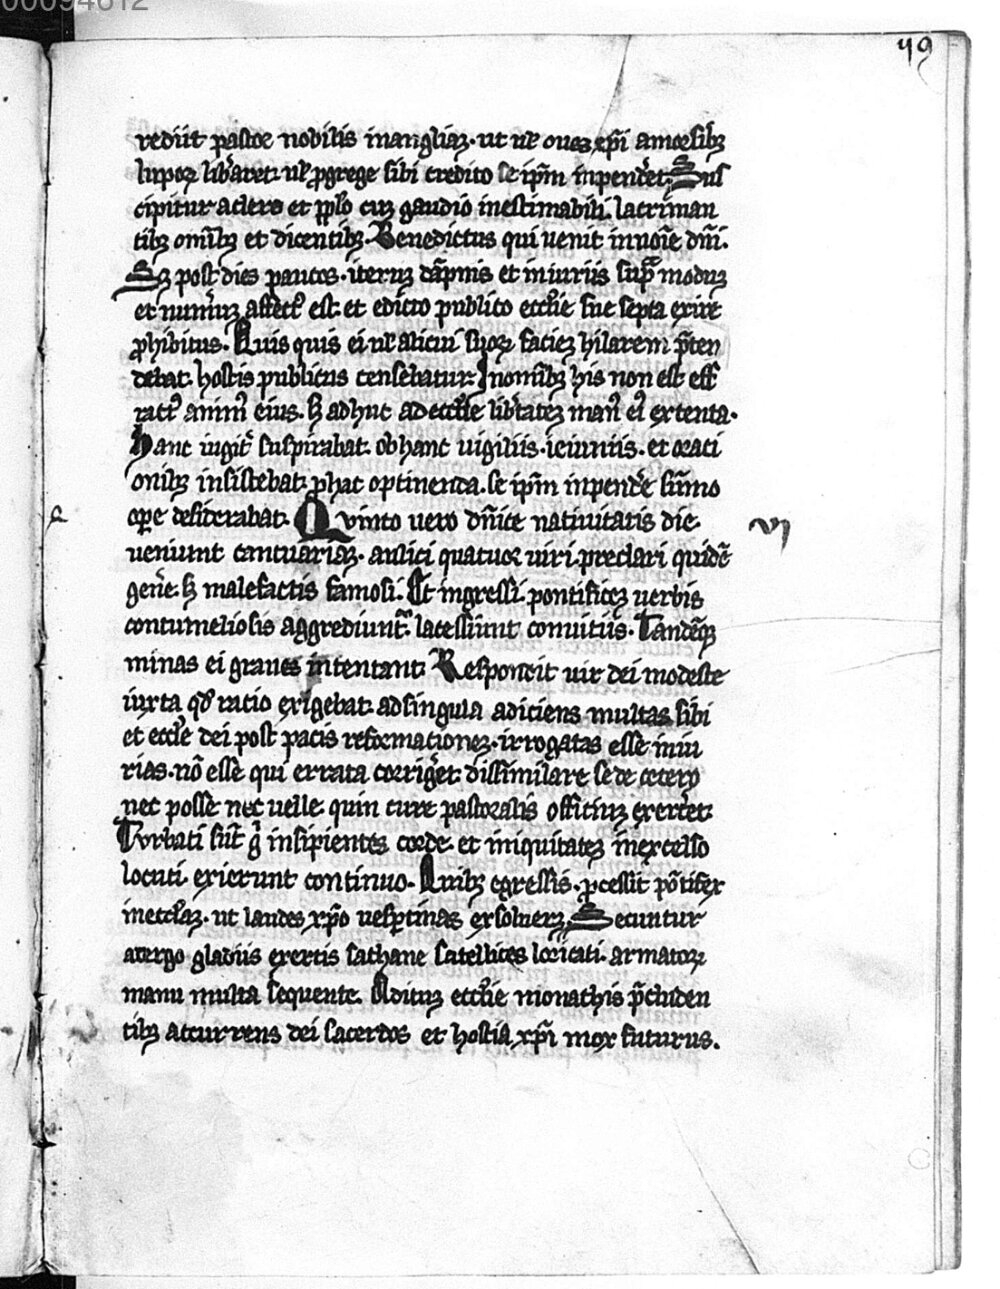 00094612
49
rediit pastor nobilis in angliaꝫ. ut uꝉ oues xp̄i a morsibꝫ
lupoꝝ lib̾aret. uꝉ ꝓ grege sibi credito se ip̄m inpend̾et. Sus
cipitur a clero et pp̄lo cuꝫ gaudio inestimabili. lacriman
tibꝫ om̄ibꝫ et dicentibꝫ. Benedictus qui uenit in noīe dn̄i.
Sꝫ post dies paucos. iteruꝫ dāpnis et iniuriis sup̄ moduꝫ
et num̄uꝫ affect᷒ est. et edicto publico eccl̄ie sue septa exire
ꝓhibitus. Quis quis ei uꝉ alicui suoꝝ facieꝫ hilarem p̄ten
debat. hostis publicus censebatur. In om̄ibꝫ his non est eff
ract᷒ anim᷒ eius. sꝫ adhuc ad eccl̄ie lib̾tateꝫ man᷒ ei᷒ extenta.
Hanc iugit̾ suspirabat. ob hanc uigiliis. ieiuniis. et orati
onibꝫ insistebat. ꝓ hac optinenda. se ip̄m inpend̾e sūmo
oꝑe desiderabat. Quinto uero dn̄ice natiuitatis die.
VI
ueniunt cantuariaꝫ. aulici quatuor uiri. preclari quidē
gen̾e. sꝫ malefactis famosi. Et ingressi. pontificeꝫ uerbis
contumeliosis aggrediunt᷑. lacessiunt conuitiis. Tandēqꝫ
minas ei graues intentant. Respondit uir dei modeste
iuxta qd̄ ratio exigebat. ad singula adiciens. multas sibi
et eccl̄e dei post pacis reformationeꝫ. irrogatas esse iniu
rias. nō esse qui errata corrig̾et. dissimilare se de cetero
nec posse nec uelle. quin cure pastoralis officiuꝫ exerc̾et.
Turbati sūt gͥ insipientes corde. et iniquitateꝫ in excelso
locuti. exierunt continuo. Quibꝫ egressis. ꝓcessit pōtifex
in eccl̄iaꝫ. ut laudes xp̄o uesꝑtinas exsolueꝝ. Secuntur
a tergo gladiis exertis sathane satellites loricati. armatoꝝ
manu multa sequente. Adituꝫ eccl̄ie monachis p̄cluden
tibꝫ accurrens dei sacerdos et hostia xp̄i mox futurus.